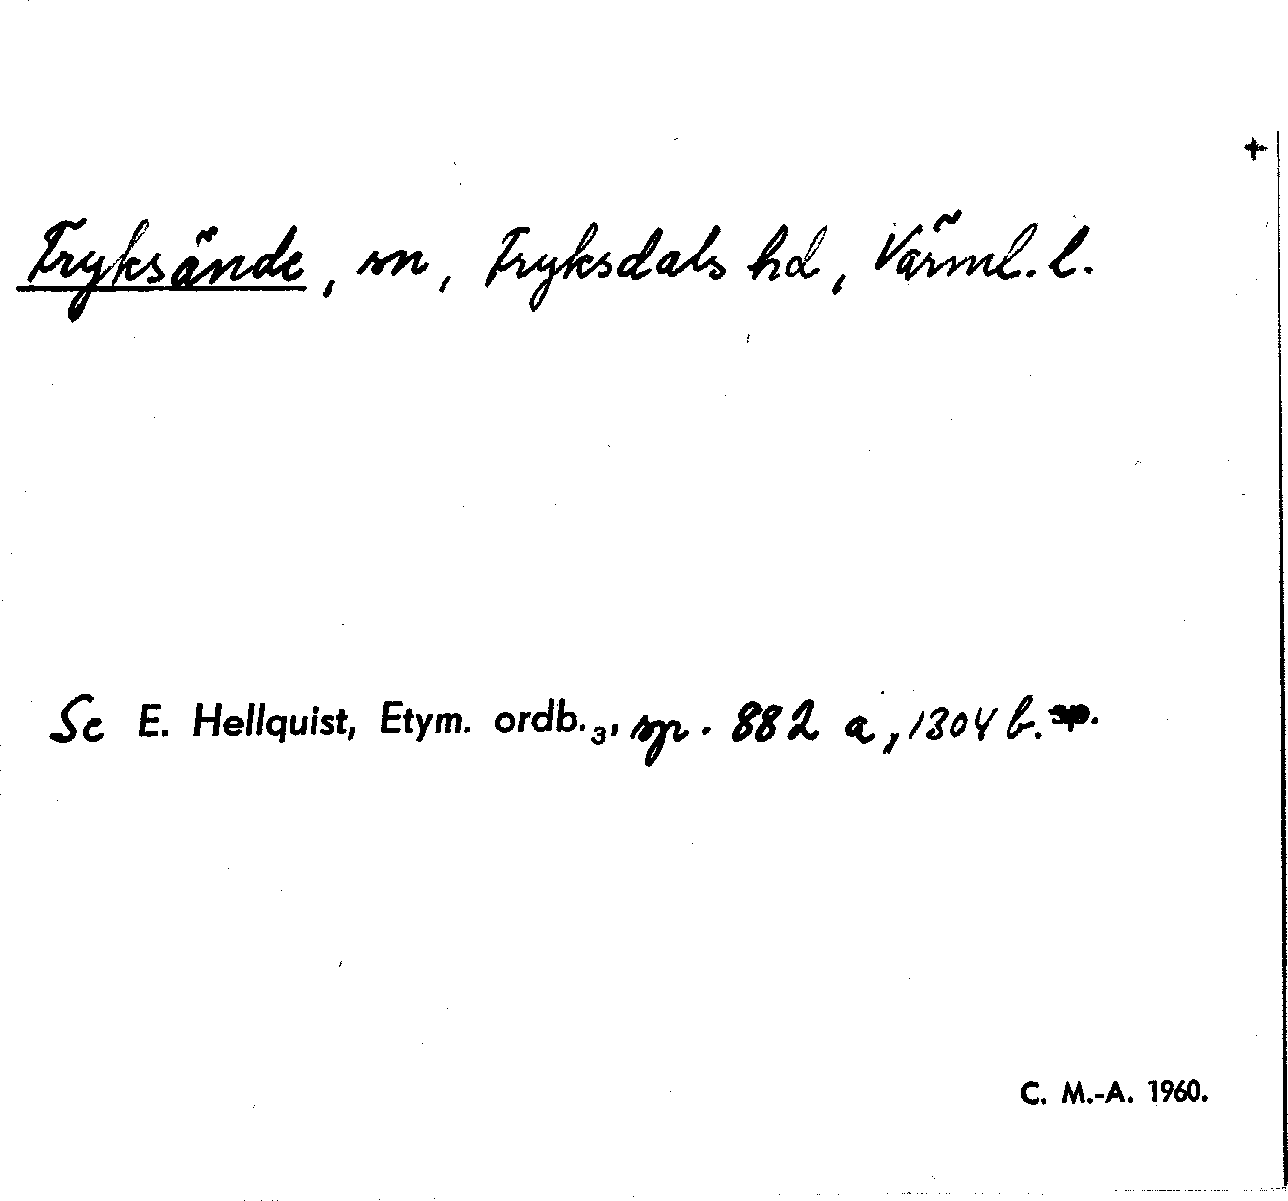 +
Fryksände, sn, Fryksdals hd, Värml. l.
Se E. Hellquist, Etym. ordb.₃, sp. 882 a, 1304 b.
C. M.-A. 1960.